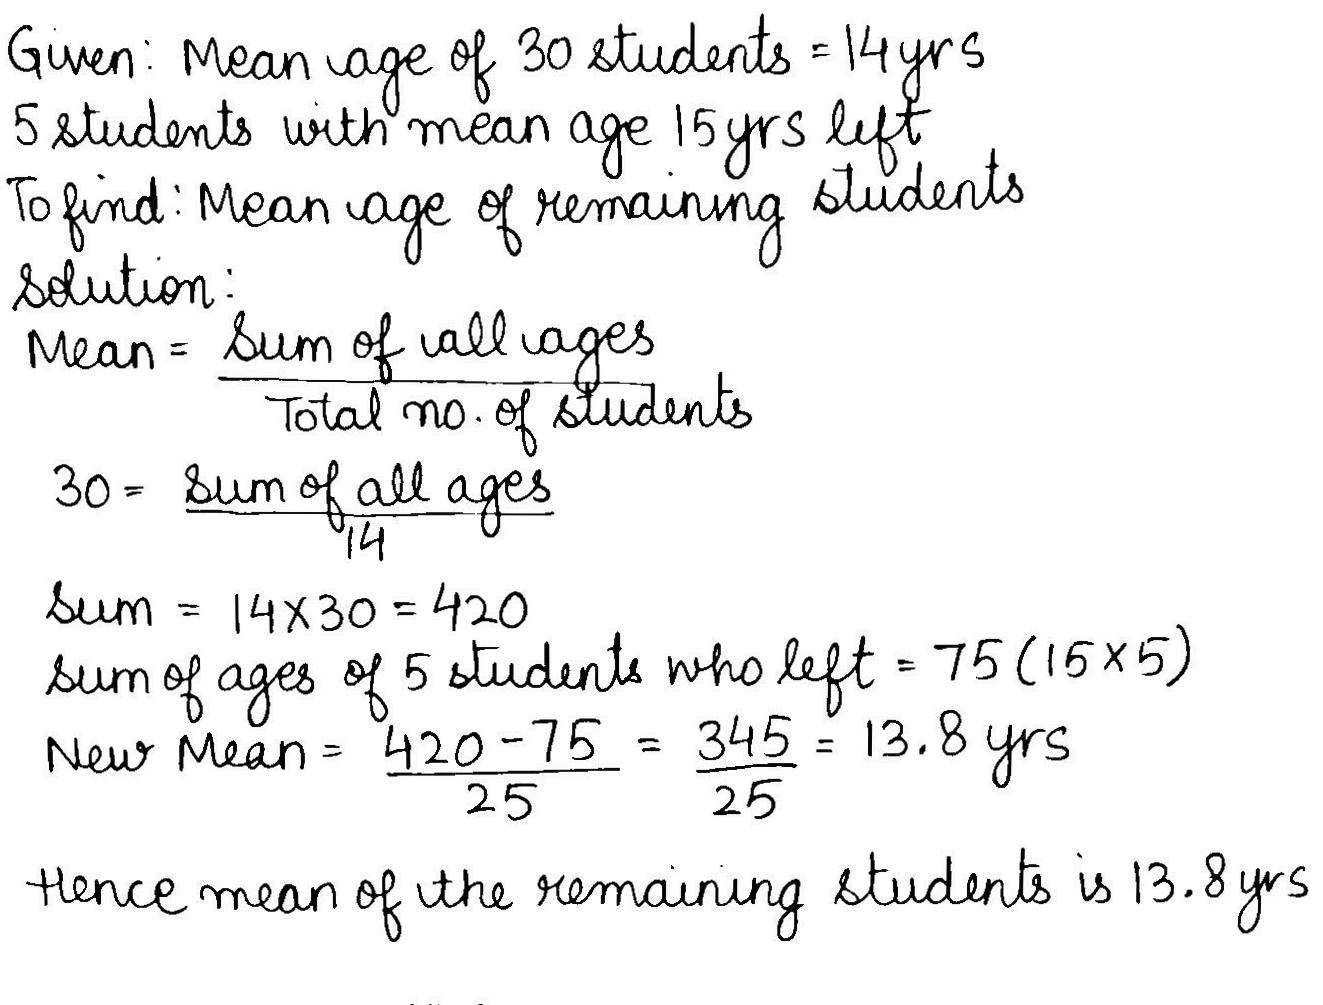 Given: Mean age of 30 students = 14yrs
5 students with mean age 15yrs left
To find: Mean age of remaining students
Solution:
Mean = Sum of all ages
Total no. of students
30 = Sum of all ages
14
Sum = 14x30 = 420
Sum of ages of 5 students who left = 75 (15x5)
New Mean = 420-75 = 345 = 13.8 yrs
25 25
Hence mean of the remaining students is 13.8 yrs